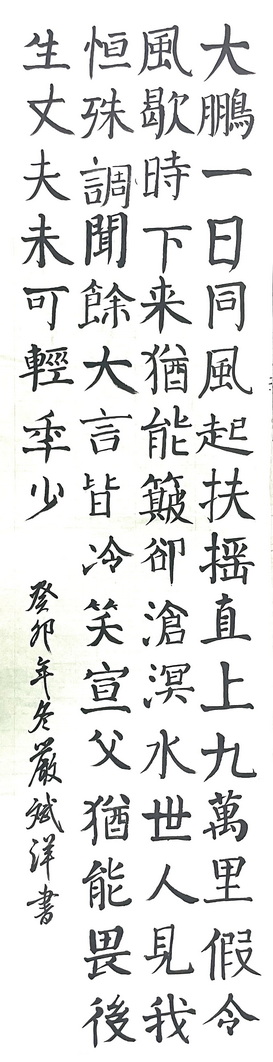 大鵬一日同風起扶摇直上九萬里假令
風歇時下来猶能簸卻滄溟水世人見我
恒殊調聞餘大言皆冷笑宣父猶能畏後
生丈夫未可輕年少
癸卯年冬嚴斌洋書